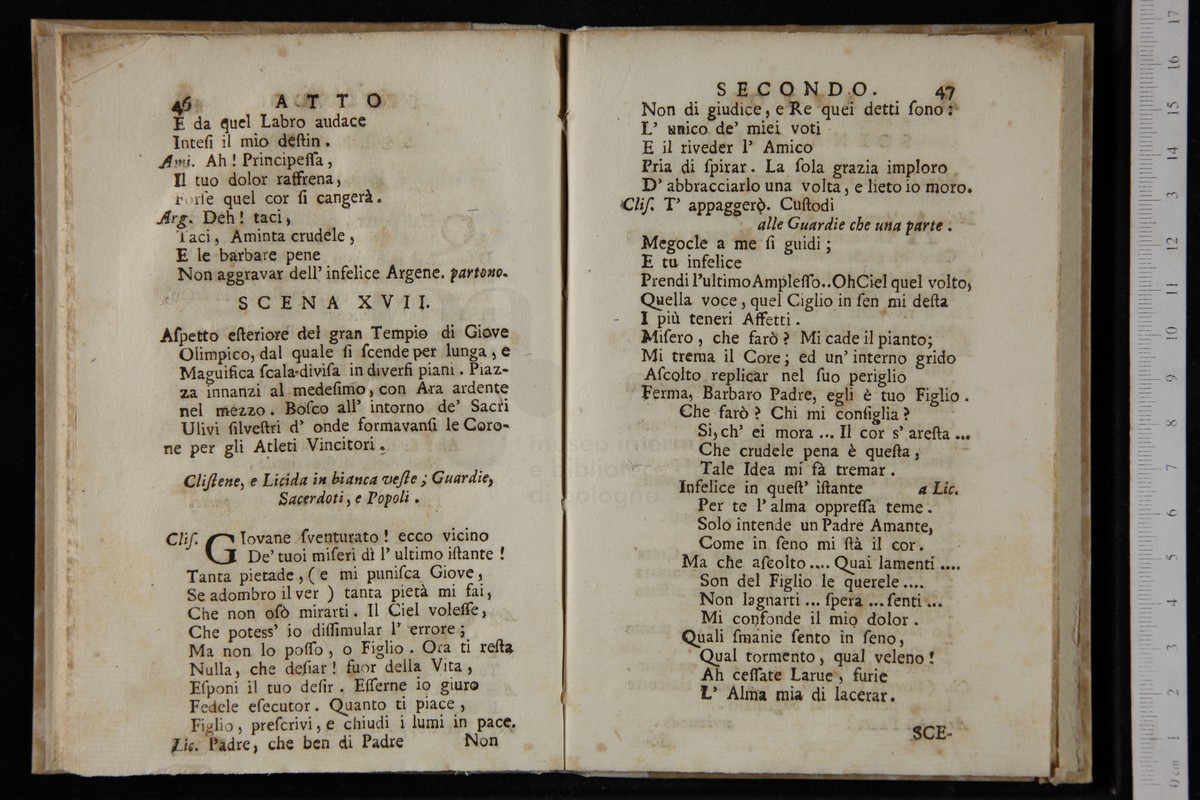 46 ATTO
E da quel Labro audace
Inteſi il mio deſtin.
Ami. Ah! Principeſſa,
Il tuo dolor raffrena,
Forſe quel cor ſi cangerà.
Arg. Deh! taci,
Taci, Aminta crudele,
E le barbare pene
Non aggravar dell' infelice Argene. partono.
SCENA XVII.
Aſpetto eſteriore del gran Tempio di Giove
Olimpico, dal quale ſi ſcende per lunga, e
Maguifica ſcala diviſa in diverſi piani. Piaz-
za innanzi al medeſimo, con Ara ardente
nel mezzo. Boſco all' intorno de' Sacri
Ulivi ſilveſtri d' onde formavanſi le Coro-
ne per gli Atleti Vincitori.
Cliſtene, e Licida in bianca veſte; Guardie,
Sacerdoti, e Popoli.
Cliſ. GIovane ſventurato! ecco vicino
De' tuoi miſeri dì l' ultimo iſtante!
Tanta pietade, (e mi puniſca Giove,
Se adombro il ver) tanta pietà mi fai,
Che non oſo mirarti. Il Ciel voleſſe,
Che potess' io diſſimular l' errore;
Ma non lo poſſo, o Figlio. Ora ti reſta
Nulla, che deſiar! fuor della Vita,
Eſponi il tuo deſir. Eſſerne io giuro
Fedele eſecutor. Quanto ti piace,
Figlio, preſcrivi, e chiudi i lumi in pace.
Lic. Padre, che ben di Padre
Non
SECONDO. 47
Non di giudice, e Re quei detti ſono:
L' unico de' miei voti
E il riveder l' Amico
Pria di ſpirar. La ſola grazia imploro
D' abbracciarlo una volta, e lieto io moro.
Cliſ. T' appaggerò. Cuſtodi
alle Guardie che una parte.
Megocle a me ſi guidi;
E tu infelice
Prendi l'ultimo Ampleſſo.. Oh Ciel quel volto,
Quella voce, quel Ciglio in ſen mi deſta
I più teneri Affetti.
Miſero, che farò? Mi cade il pianto;
Mi trema il Core; ed un' interno grido
Aſcolto replicar nel ſuo periglio
Ferma, Barbaro Padre, egli è tuo Figlio.
Che farò? Chi mi conſiglia?
Si, ch' ei mora ... Il cor s' areſta ...
Che crudele pena è queſta,
Tale Idea mi fà tremar.
Infelice in queſt' iſtante a Lic.
Per te l' alma oppreſſa teme.
Solo intende un Padre Amante,
Come in ſeno mi ſtà il cor.
Ma che aſcolto .... Quai lamenti ....
Son del Figlio le querele ....
Non lagnarti ... ſpera ... ſenti ...
Mi confonde il mio dolor.
Quali ſmanie ſento in ſeno,
Qual tormento, qual veleno!
Ah ceſſate Larue, furie
L' Alma mia di lacerar.
SCE-